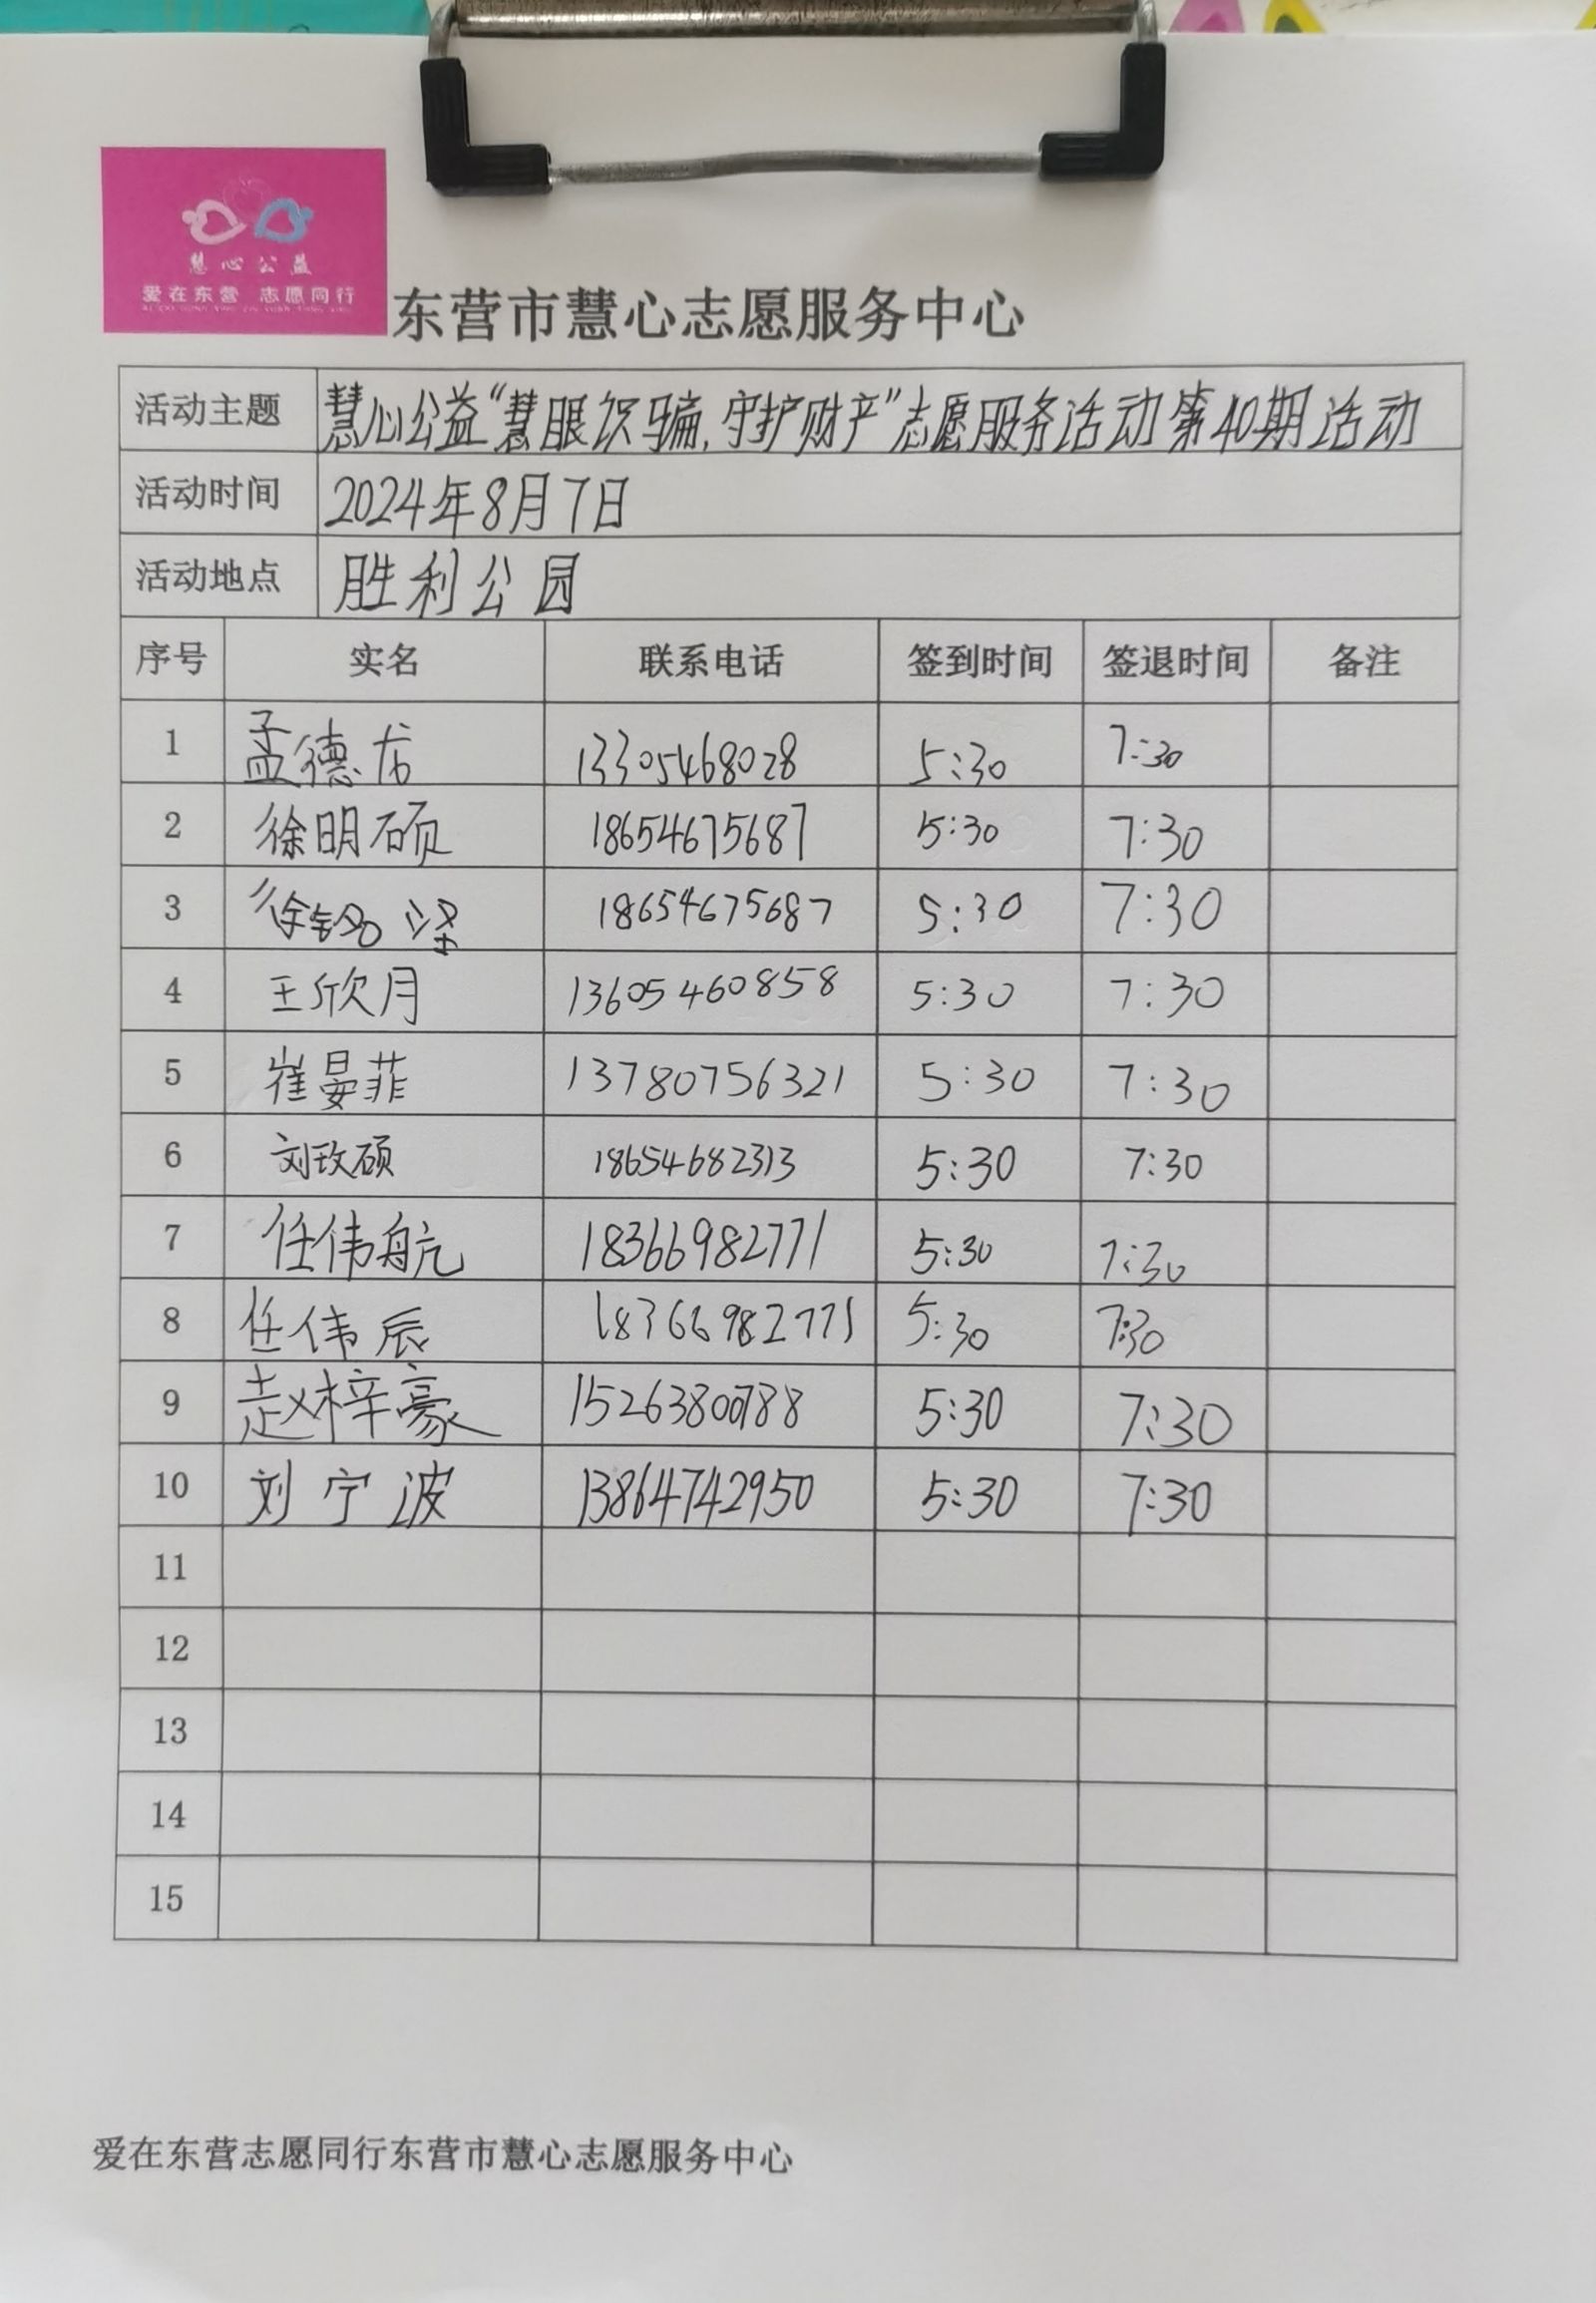 慧心公益
爱在东营 志愿同行
东营市慧心志愿服务中心
活动主题 慧心公益“慧眼识骗,守护财产”志愿服务活动第40期活动
活动时间 2024年8月7日
活动地点 胜利公园
序号 实名 联系电话 签到时间 签退时间 备注
1 孟德龙 13305468028 5:30 7:30
2 徐明硕 18654675687 5:30 7:30
3 徐铭泽 18654675687 5:30 7:30
4 王欣月 13605460858 5:30 7:30
5 崔晏菲 13780756321 5:30 7:30
6 刘玫硕 18654682313 5:30 7:30
7 任伟航 18366982771 5:30 7:30
8 任伟辰 18366982771 5:30 7:30
9 赵梓豪 15263800788 5:30 7:30
10 刘宁波 13864742950 5:30 7:30
11
12
13
14
15
爱在东营志愿同行东营市慧心志愿服务中心